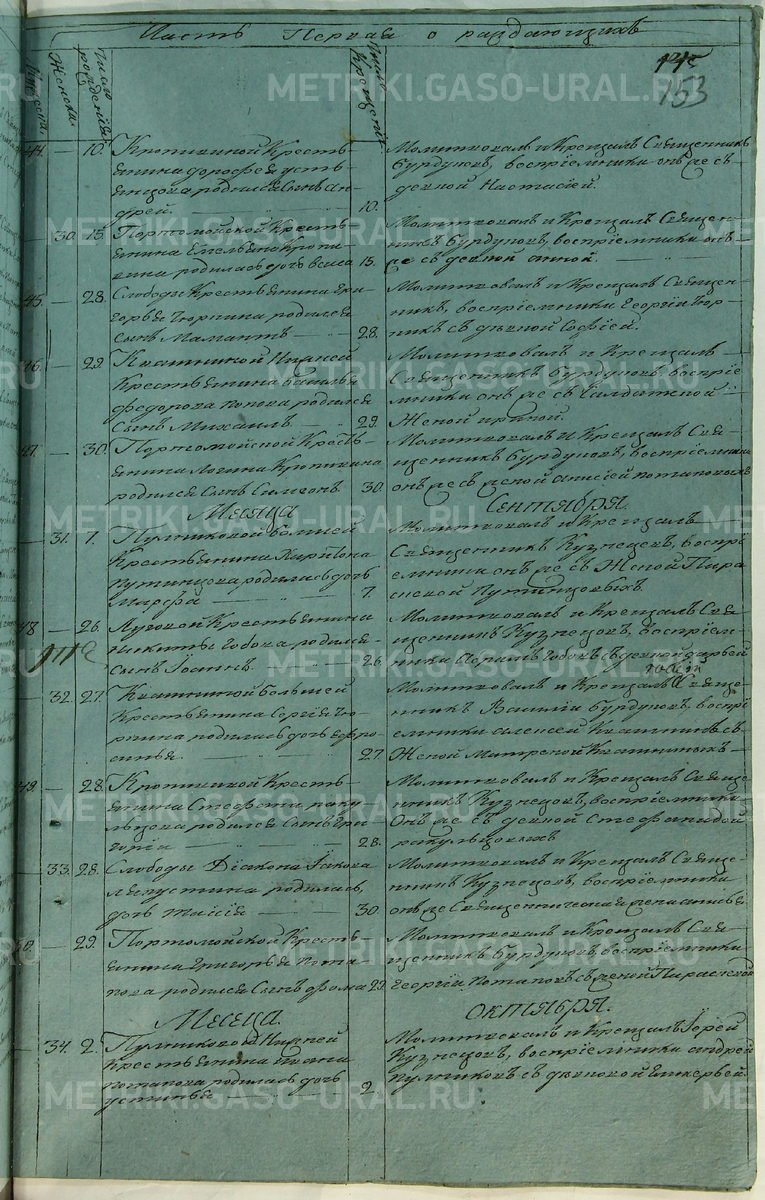 Часть Первая о раздающихся
145
153
Мужеска.
Женска.
Число рождения
Число крещения
44. — 10. Кропихиной Кресть-
янина дорофея усть-
янцова родился Сынъ Ан-
дрей. 10.
Молитвовалъ и Крещалъ Священникъ
Бурдуковъ, воспріемники онъ же съ
девкой Настасіей.
30. 15. Портомойской Кресть-
янина Емельяна Кропи-
хина родилась дочь 15.
Молитвовалъ и Крещалъ Священ-
никъ Бурдуковъ, воспріемники онъ
же съ девкой анной.
45 — 28. Слободы Крестьянина Гри-
горья Тюрнина родился
Сынъ Мамантъ — 28.
Молитвовалъ и Крещалъ Священ-
никъ, воспріемники Георгій Тюр-
никъ съ девкой Софіей.
46. — 29. Квашниной Нижней
Крестьянина Василья
федорова родился
Сынъ Михаилъ — 29.
Молитвовалъ и Крещалъ —
Священникъ Бурдуковъ, воспріе-
мники онъ же съ Салдатской
Женой ириной.
47. — 30. Портомойской Кресть-
янина Логина Кропихина
родился Сынъ Симеонъ. 30.
Молитвовалъ и Крещалъ Свя-
щенникъ Бурдуковъ, воспріемники
онъ же съ женой анисіей потаповыхъ
Месяца
Сентября.
31. 7. Пульниковой болшей
Крестьянина Харитона
Путинцова родилась дочь
Марфа — 7.
Молитвовалъ и Крещалъ
Священникъ Кузнецовъ, воспрі-
емники онъ же съ Женой Пара-
скевой Путинцовыхъ.
48 — 26. Луговой Крестьянина
никиты Бобова родился
Сынъ Іоаннъ. — 26.
Молитвовалъ и Крещалъ Свя-
щенникъ Кузнецовъ, воспріем-
ники бобовъ, съ девкой дарьей
32. 27. Квашниной большей
Крестьянина Сергея Тю-
рнина родилась дочь ефро-
синья. — 27.
Молитвовалъ и Крещалъ Свяще-
нникъ Василій Бурдуковъ воспрі-
емники алексей Квашнинъ съ
Женой Матреной Квашниныхъ —
49. — 28. Кропихиной Кресть-
янина раку-
льцова родился Сынъ Гри-
горій — 28.
Молитвовалъ и Крещалъ Свяще-
нникъ Кузнецовъ, воспріемники
Онъ же съ девкой Стефанидой
ракульцовыхъ
33. 28. Слободы Діакона Іакова
Лепустина родилась
дочь таисія — 30.
Молитвовалъ и Крещалъ Священ-
никъ Кузнецовъ, воспріемники
онъ же Священническая жена
50. 29. Портомойской Кресть-
янина Григорья Пота-
пова родился Сынъ фома 29.
Молитвовалъ и Крещалъ Свя-
щенникъ Бурдуковъ, воспріемники
Георгій Потаповъ съ женой Параскевой
Месеца.
Октября.
34. 2. Пульниковой Нижней
Крестьянина Ивана
потапова родилась дочь
устинья — 2.
Молитвовалъ и Крещалъ Іерей
Кузнецовъ, воспріемники андрей
пульниковъ съ девкой Гликерьей
METRIKI.GASO-URAL.RU